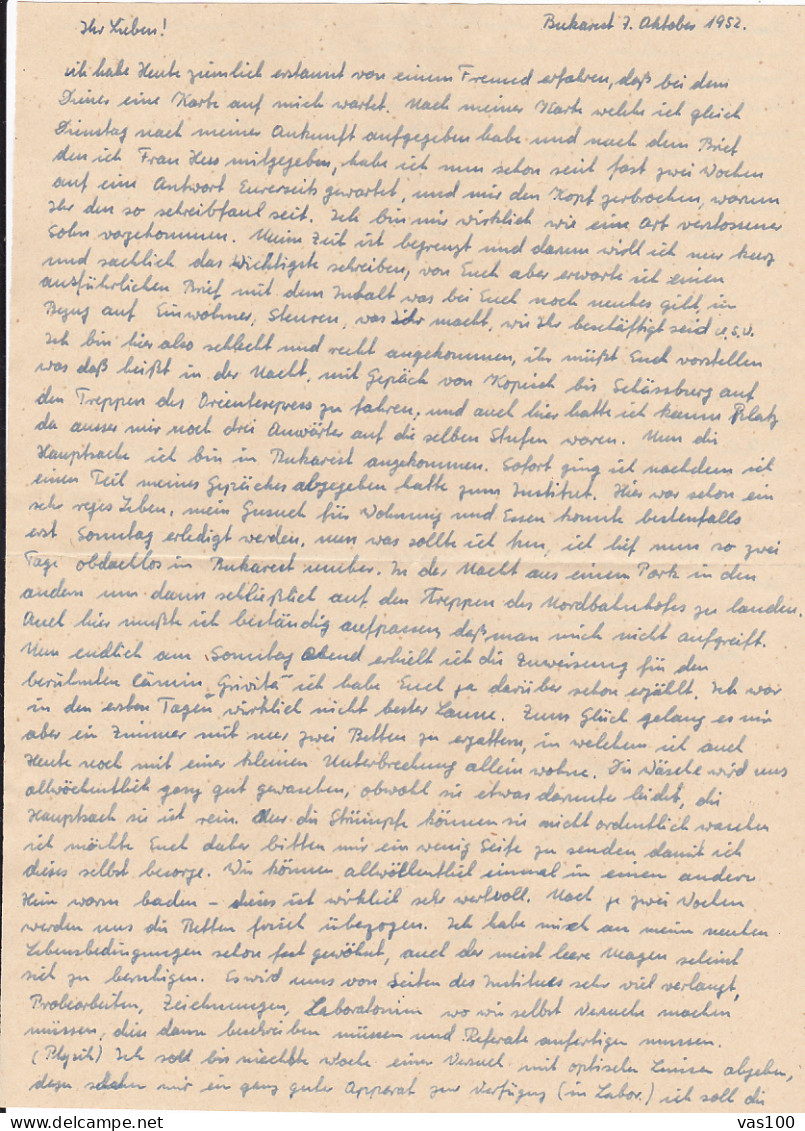 Bukarest 7. Oktober 1952.
Ihr Lieben!
ich habe Heute ziemlich erstaunt von einem Freund erfahren, daß bei dem
Dienes eine Karte auf mich wartet. Nach meiner Karte welche ich gleich
Dienstag nach meiner Ankunft aufgegeben habe und nach dem Brief
den ich Frau Hess mitgegeben, habe ich nun schon seit fast zwei Wochen
auf eine Antwort Eurerseits gewartet, und mir den Kopf zerbrochen, warum
Ihr den so schreibfaul seit. Ich bin mir wirklich wie eine Art verstossener
Sohn vorgekommen. Meine Zeit ist begrenzt und darum will ich nur kurz
und sachlich das Wichtigste schreiben, von Euch aber erwarte ich einen
ausführlichen Brief mit dem Inhalt was bei Euch noch neues gibt, in
Bezug auf Einwohner, Steuren, was Ihr macht, wie Ihr beschäftigt seid u.s.w.
Ich bin hier also schlecht und recht angekommen, ihr müßt Euch vorstellen
was daß heißt in der Nacht, mit Gepäck von Kopisch bis Schässburg auf
den Treppen des Orientexpress zu fahren, und auch hier hatte ich kaum Platz
da ausser mir noch drei Anwärter auf die selben Stufen waren. Nun die
Hauptsache ich bin in Bukarest angekommen. Sofort ging ich nachdem ich
einen Teil meines Gepäckes abgegeben hatte zum Institut. Hier war schon ein
sehr reges Leben, mein Gesuch für Wohnung und Essen konnte bestenfalls
erst Sonntag erledigt werden, nun was sollte ich tun, ich lief nun so zwei
Tage obdachlos in Bukarest umher. In der Nacht aus einem Park in den
andern um dann schließlich auf den Treppen des Nordbahnhofes zu landen.
Auch hier mußte ich beständig aufpassen, daß man mich nicht aufgreift.
Nun endlich am Sonntag Abend erhielt ich die Zuweisung für den
berühmten Cămin „Grivița" ich habe Euch ja darüber schon erzählt. Ich war
in den ersten Tagen wirklich nicht bester Laune. Zum Glück gelang es mir
aber ein Zimmer mit nur zwei Betten zu ergattern, in welchem ich auch
Heute noch mit einer kleinen Unterbrechung allein wohne. Die Wäsche wird uns
allwöchentlich ganz gut gewaschen, obwohl sie etwas darunter leidet, die
Hauptsach sie ist rein. Aber die Strümpfe können sie nicht ordentlich waschen
ich möchte Euch daher bitten mir ein wenig Seife zu senden damit ich
dieses selbst besorge. Wir können allwöllentlich einmal in einen andern
Heim warm baden – dieses ist wirklich sehr wertvoll. Nach je zwei Wochen
werden uns die Betten frisch überzogen. Ich habe mich an mein neuten
Lebensbedingungen schon fast gewöhnt, auch der meist leere Magen scheint
sich zu beruhigen. Es wird uns von Seiten des Institues sehr viel verlangt,
Probearbeiten, Zeichnungen, Laboratorium wo wir selbst Versuche machen
müssen, diese dann beschreiben müssen und Referate anfertigen mussen.
(Physik) Ich soll bis nächste Woche einen Versuch mit optischen Linsen abgeben,
dazu stehen mir ein ganz guter Apparat zur Verfügung (in Labor.) ich soll die
vas100